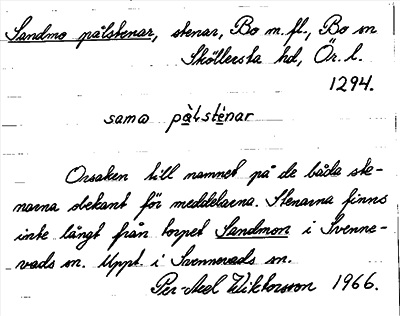 Sandmo pålstenar, stenar, Bo m. fl., Bo sn
Sköllersta hd, Ör. l.
1294.
samω på̀lsténar
Orsaken till namnet på de båda ste-
narna obekant för meddelarna. Stenarna finns
inte långt från torpet Sandmon i Svenne-
vads sn. Uppt. i Svennevads sn.
Per-Axel Wiktorsson 1966.